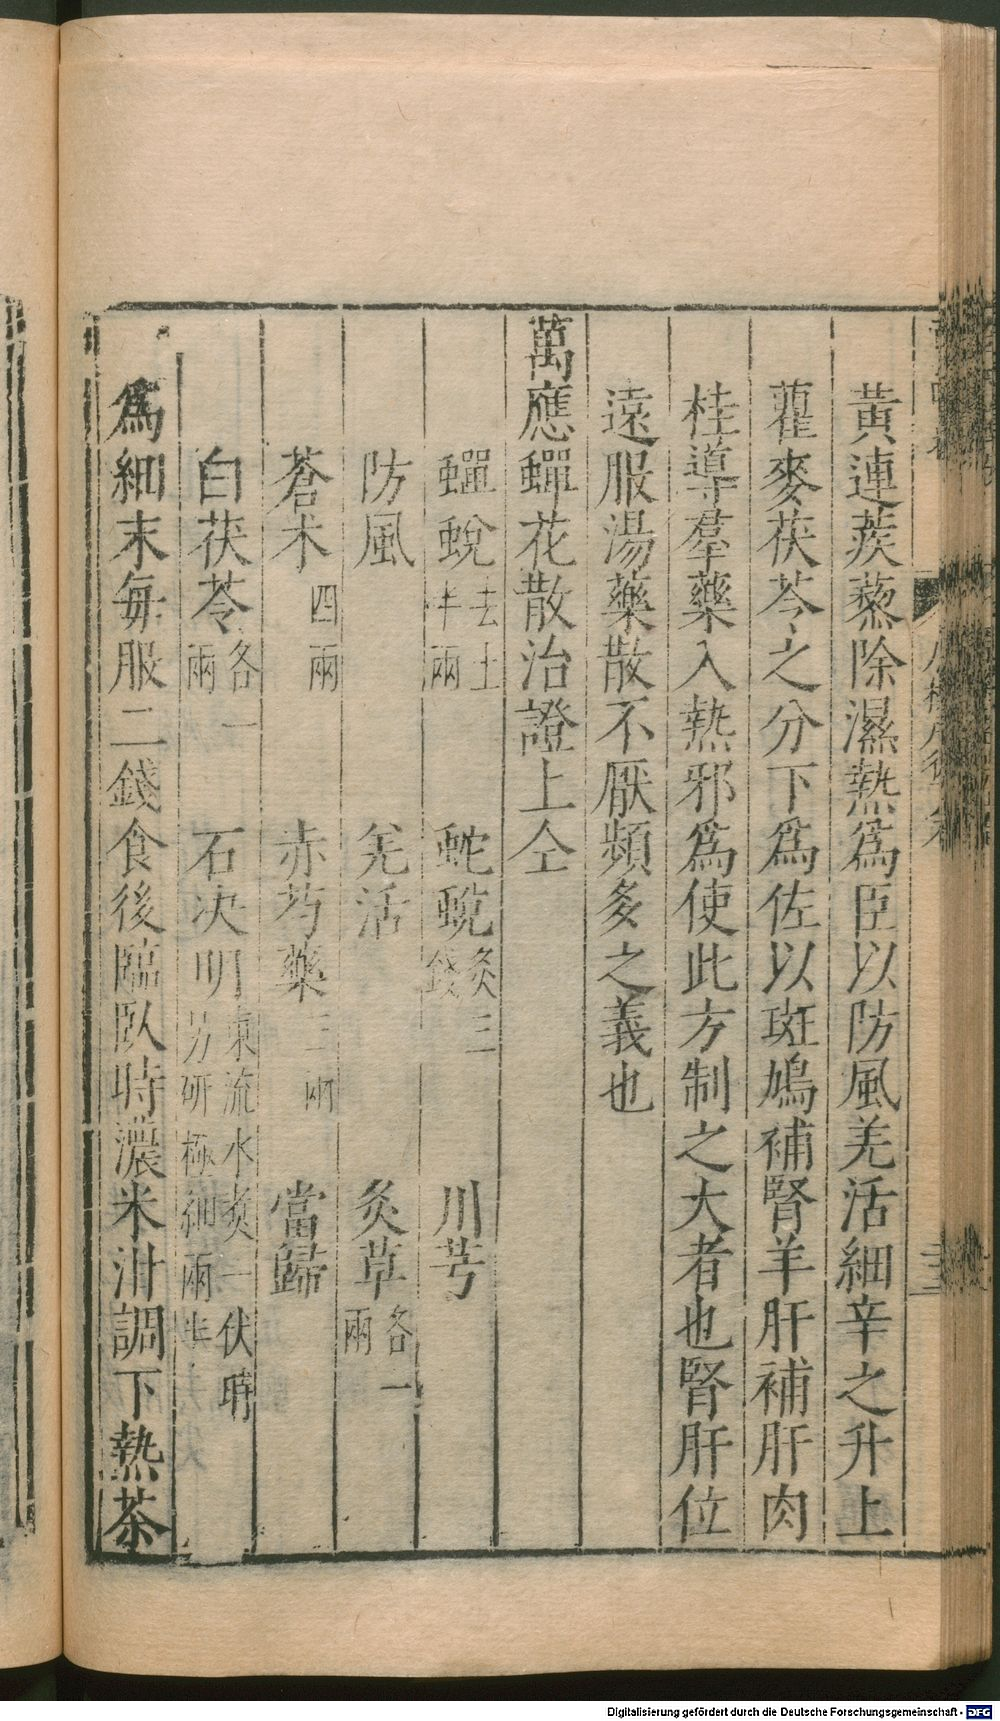 黃連蒺蔾除濕熱爲臣以防風羌活細辛之升上
藿麥茯苓之分下爲佐以斑鳩補腎羊肝補肝肉
桂導羣藥入熱邪爲使此方制之大者也腎肝位
遠服湯藥散不厭頻多之義也
萬應蟬花散治證上仝
蟬蛻去土半兩 蛇蛻炙三錢 川芎
防風 羌活 炙草各一兩
蒼朮四兩 赤芍藥三兩 當歸
白茯苓各一兩 石决明東流水煮一伏時另研極細兩半
爲細末每服二錢食後臨臥時濃米泔調下熱茶
Digitalisierung gefördert durch die Deutsche Forschungsgemeinschaft - DFG